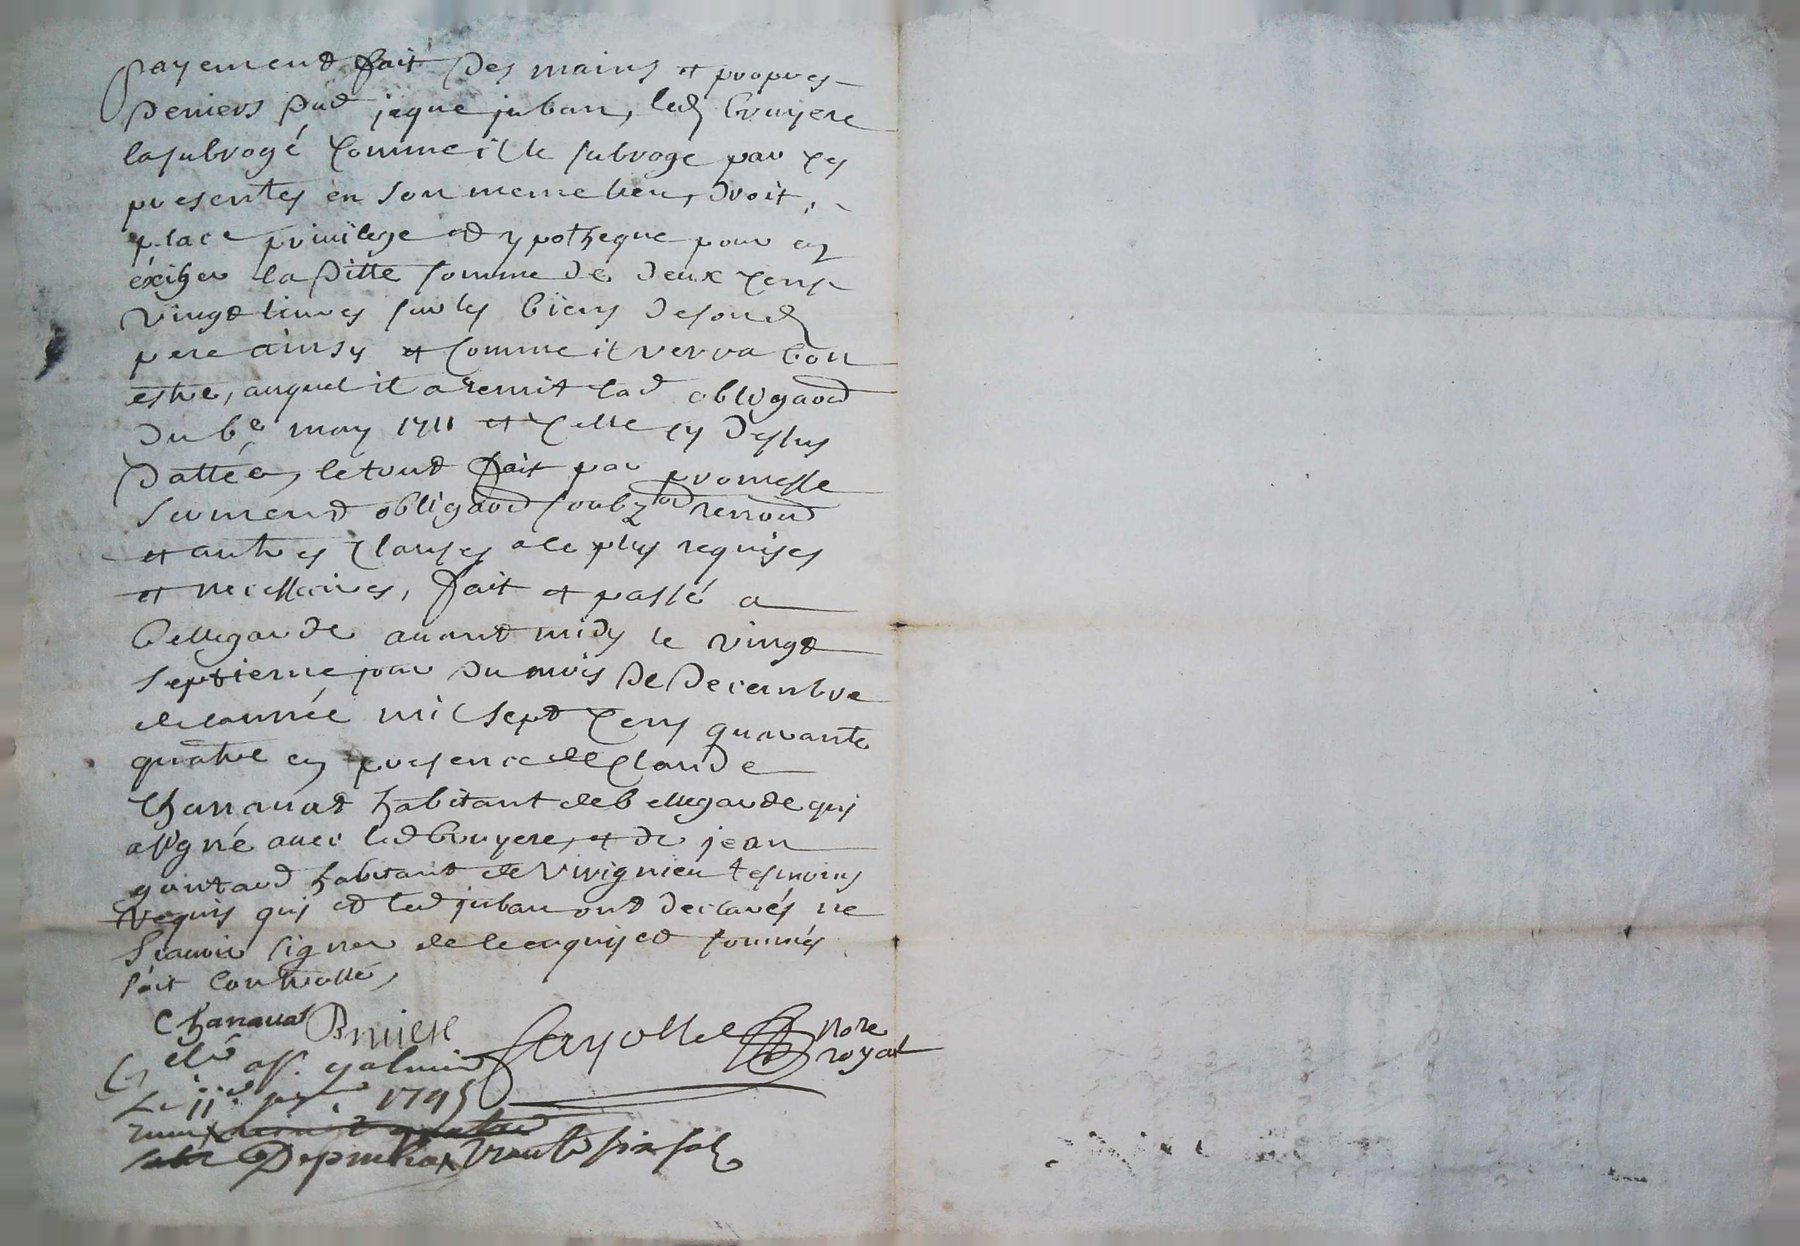 payement fait des mains et propres
deniers dud jaque juban, led bruyere
la subrogé comme il le subroge par ces
presentes en son meme lieu, droit,
place privilege et ypotheque pour en
exiger la ditte somme de deux cens
vingt livres sur les biens de sond
pere ainsy et comme il verra bon
estre, auquel il a remit lad obligaon
du 6e may 1711 et celle cy dessus
dattée, le tout fait par promesse
serment obligaon soubz renon
et autres clauses a ce plus requises
et necessaires, fait et passé a
bellegarde avant midy le vingt
septieme jour du mois de decembre
de lannée mil sept cens quarante
quatre en presence de Claude
Chanavat habitant de bellegarde qui
a signé avec led bruyere, et de jean
gontard habitant de Virignieu tesmoins
requis qui et led juban ont declarés ne
scavoir signer de ce enquis et sommés
soit controllé,
Chanavat Bruiere nore
royal
Clé a St. galmier
Le 11e 1745
trente six sols